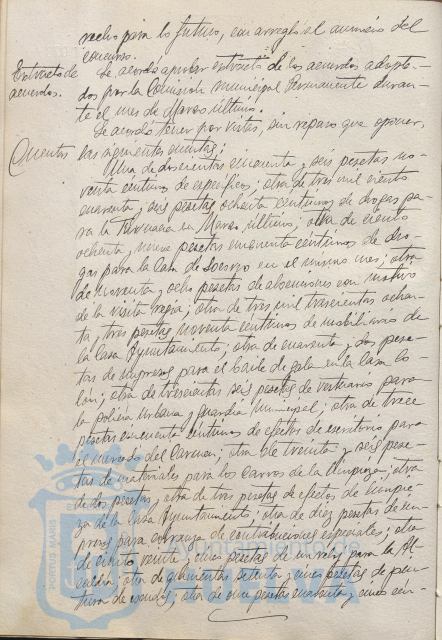 recho para lo futuro, con arreglo al anuncio del
concurso.
Extracto de
acuerdos.
Se acordó aprobar extracto de los acuerdos adopta-
dos por la Comisión municipal Permanente duran-
te el mes de Marzo último.
Se acordó tener por vistas, sin reparo que oponer,
Cuentas
las siguientes cuentas;
Una de doscientas cincuenta y seis pesetas no-
venta centimos de específicos; otra de tres mil ciento
cuarenta y seis pesetas ochenta centimos de drogas pa-
ra la Farmacia en Marzo último; otra de ciento
ochenta y nueve pesetas cincuenta centimos de dro-
gas para la Casa de Socorro en el mismo mes; otra
de noventa y ocho pesetas de con motivo
de la visita regia; otra de tres mil trescientas ochen-
ta y tres pesetas noventa centimos de mobiliario de
la Casa Ayuntamiento; otra de cuarenta y dos pese-
tas de impresos para el baile de gala en la Casa Co-
lón; otra de trescientas seis pesetas de vestuario para
la policía urbana y guardia municipal; otra de trece
pesetas cincuenta centimos de efectos de escritorio para
el mercado del Carmen; otra de treinta y seis pese-
tas de materiales para los carros de la limpieza; otra
de dos pesetas; otra de tres pesetas de efectos de limpie-
za de la Casa Ayuntamiento; otra de diez pesetas de im-
presos para cobranza de contribuciones especiales; otra
de ciento veinte y cinco pesetas de un reloj para la Al-
caldia; otra de quinientas setenta y cinco pesetas de pin-
tura de escudos; otra de once pesetas cuarenta y cinco cén-
PORTUS MARIS
HUELVA